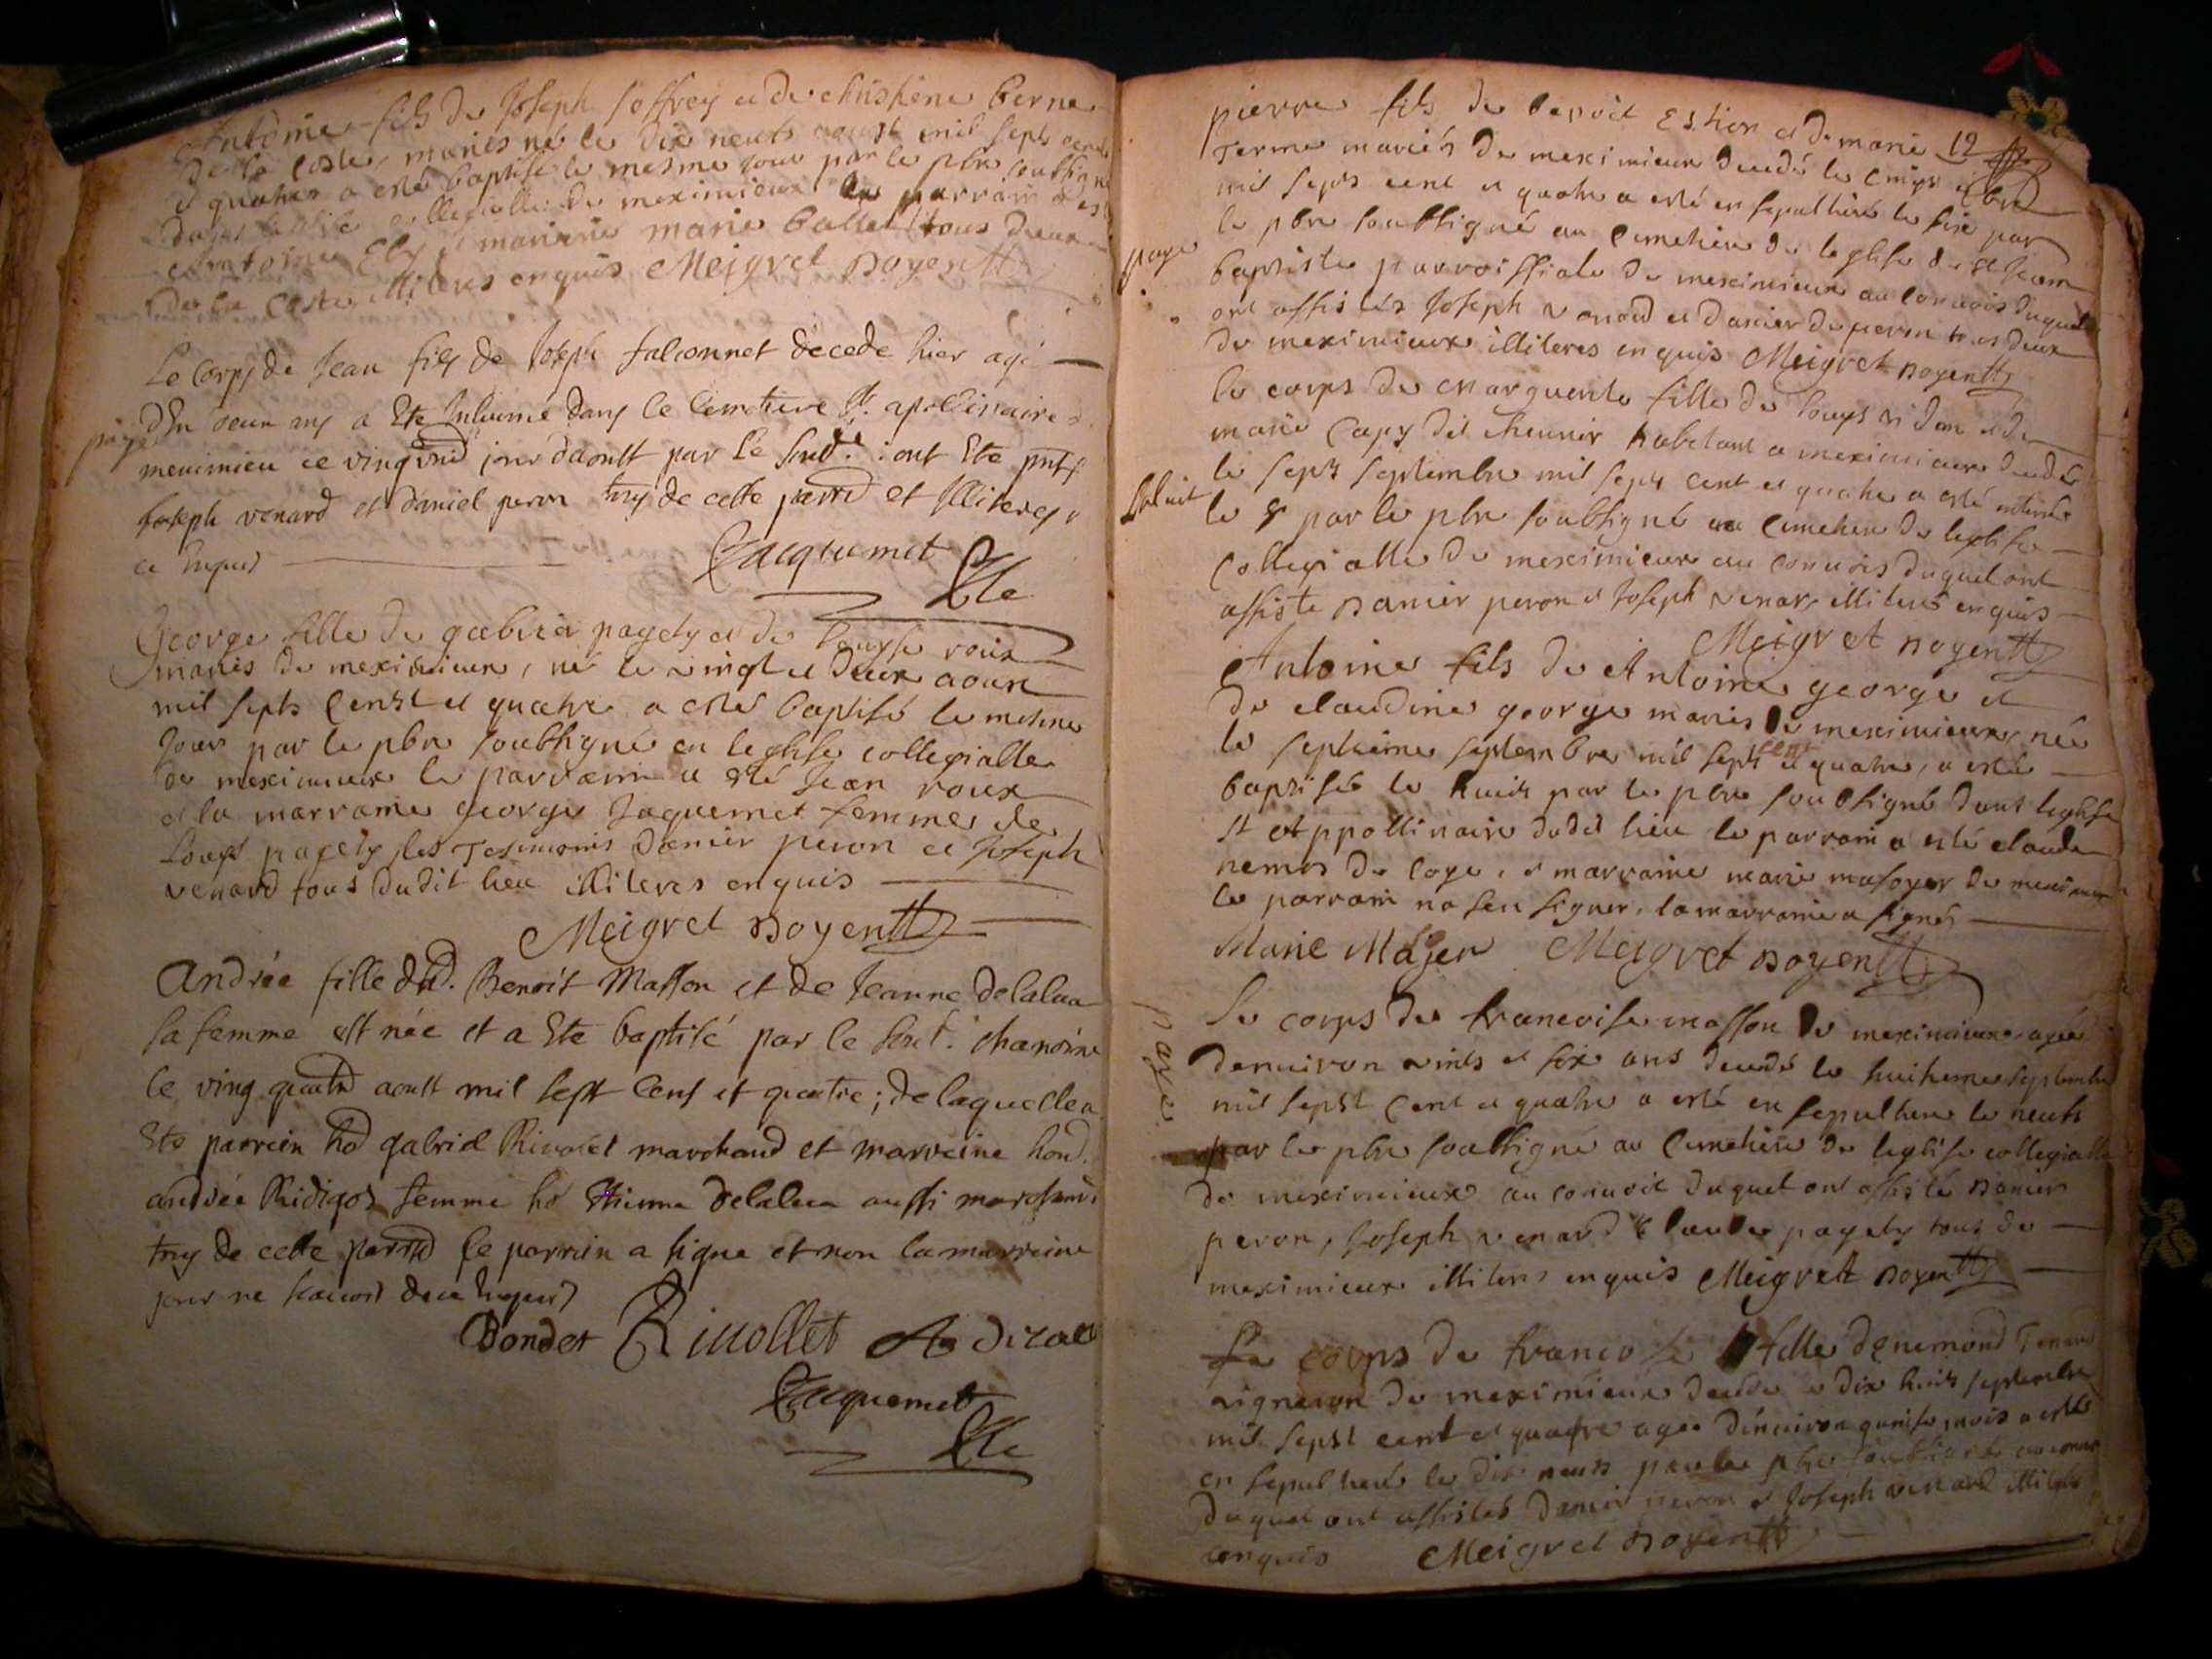 Antoine fils de Joseph Joffrey et de christine berne
de la Coste, mariés né le dix neufs aoust mil septs cent
et quatre a esté baptisé le mesme jour par le pbre soubsigné
dans leglise collegialle de meximieux le parrain a esté
Antoine Ely et maraine marie ballet tous deux
de la Coste illiteres enquis Meigret Doyen
Le Corps de Jean fils de Joseph falconnet décede hier agé
paye
d'En deux ans a Ete Inhumé dans le Cemetiere St. apollinaire
meximieu ce vingt jour d'aoust par Le soud. : ont Ete pnts
Joseph venard et daniel peron tns de cette parr et Illiteres
ce Enquis
Jacquemet
George fille de gabriel pagety et de Louyse roux
mariés de meximieux, né le vingt et deux aoust
mil septs Censt et quatre a esté baptisé le mesme
Jour par le pbre soubsigné en leglise collegialle
de meximieux le parrain a esté Jean roux
et la marraine george Jaquemet femme de
Louys pagety les Tesmoins Danier peron et Joseph
venard tous dudit lieu illiteres enquis
Meigret Doyen
Andrée fille dud. Benoit Masson et de Jeanne delalua
sa femme est née et a Ete baptisé par le soud. chanoine
le ving quatre aoust mil sept Cens et quatre ; de laquelle a
Ete parrein hod gabriel Rivollet marchand et marreine hon.
andrée femme ho Etienne delalua aussi marchand
tns de cette parr Le parrein a signe et non la marreine
pour ne scavoir de ce Enquis
Bondet Rivollet
Jacquemet
12
pierre fils de benoit Estion et de marie
Terme mariés de meximieux decedé le cinq
mil septs cent et quatre a esté en sepulturé le six par
le pbre soubsigné au Cimetiere de leglise de st Jean
paye
baptiste parroissiale de meximieux au convois duquel
ont assistés Joseph venard et Danier de peron tous deux
de meximieux illiteres enquis Meigret Doyen
le corps de Marguerite fille de Louys et de
marie Capy dit habitant a meximieux decedée
le septs septembre mil septs cent et quatre a esté enterrée
le 8 par le pbre soubsigné au Cimetiere de leglise
Collegialle de meximieux au convois duquel ont
assisté Danier peron et Joseph venar, illiteres enquis
Meigret Doyen
Antoine fils de Antoine george et
de claudine george mariés de meximieux, née
le septieme septembre mil septs cent et quatre, a esté
baptisée le huits par le pbre soubsigné dans leglise
st Appollinaire dudit lieu le parrain a esté claude
nemos de loye, et marraine marie de meximieux
le parrain na seu signer, la marraine a signés
Marie Meigret Doyen
Le corps de francoise masson de meximieux agée
paye
denuiron vints et six ans decedé le huitieme septembre
mil sepst Cent et quatre a esté en sepulturé le neufs
par le pbre soubsigné au Cimetiere de leglise collegialle
de meximieux au convoit duquel ont assisté Danier
peron, Joseph venard Claude pagety tous de
meximieux illiteres enquis Meigret Doyen
Le corps de francoise fille denemond Tenand
vigneron de meximieux decedée le dix huits septembre
mil sepst cent et quatre agée denuiron quinse mois a esté
en sepulturée le dix neufs par le pbre soubsigné au convoi
duquel ont assistés Danier peron et Joseph venard illiteres
enquis Meigret Doyen